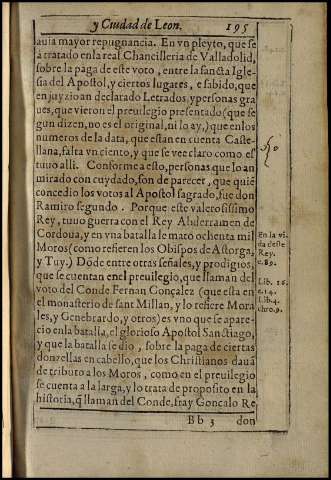 y Ciudad de Leon. 195
auia mayor repugnancia. En vn pleyto, que se
à tratado en la real Chancilleria de Valladolid,
sobre la paga de este voto, entre la sancta Igle-
sia del Apostol, y ciertos lugares, e sabido, que
en juyzio an declarado Letrados, y personas gra
ues, que vieron el preuilegio presentado (que se
gun dizen, no es el original, ni lo ay,) que en los
numeros de la data, que estan en cuenta Caste-
llana, falta vn ciento, y que se vee claro como el
tuuo alli. Conforme a esto, personas que lo an
mirado con cuydado, son de parecer, que quiẽ
concedio los votos al Apostol sagrado, fue don
Ramiro segundo. Porque este valerosissimo
Rey, tuuo guerra con el Rey Abderramen de
Cordoua, y en vna batalla se matò ochenta mil
Moros (como refieren los Obispos de Astorga,
y Tuy.) Dõde entre otras señales, y prodigios,
que se cuentan en el preuilegio, que llaman del
voto del Conde Fernan Gonçalez (que esta en
el monasterio de sant Millan, y lo refiere Mora
les, y Genebrardo, y otros) es vno que se apare-
cio en la batalla, el glorioso Apostol Sanctiago,
y que la batalla se dio, sobre la paga de ciertas
donzellas en cabello, que los Christianos dauã
de tributo a los Moros, como en el preuilegio
se cuenta a la larga, y lo trata de proposito en la
historia, q̃ llaman del Conde, fray Gonçalo Re
Bb 3 don
En la vi
da deste
Rey.
c.89.
Lib. 16.
c.14.
Lib.4.
chro.9.